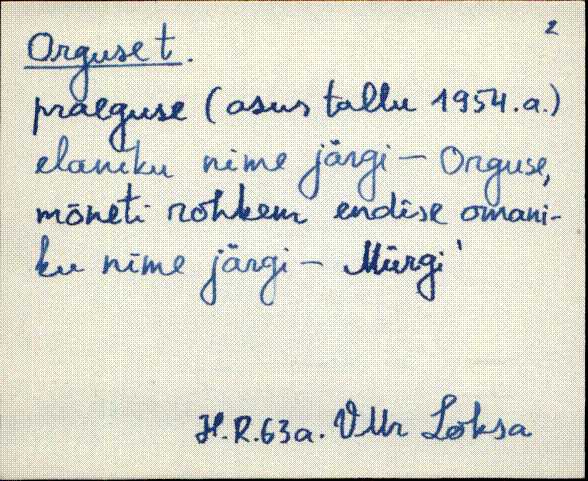 2
Orguse t.
praeguse (asus tallu 1954.a.)
elaniku nime järgi – Orguse,
mõneti rohkem endise omani-
ku nime järgi – Mürgi'
H.R.63a. VMr Loksa